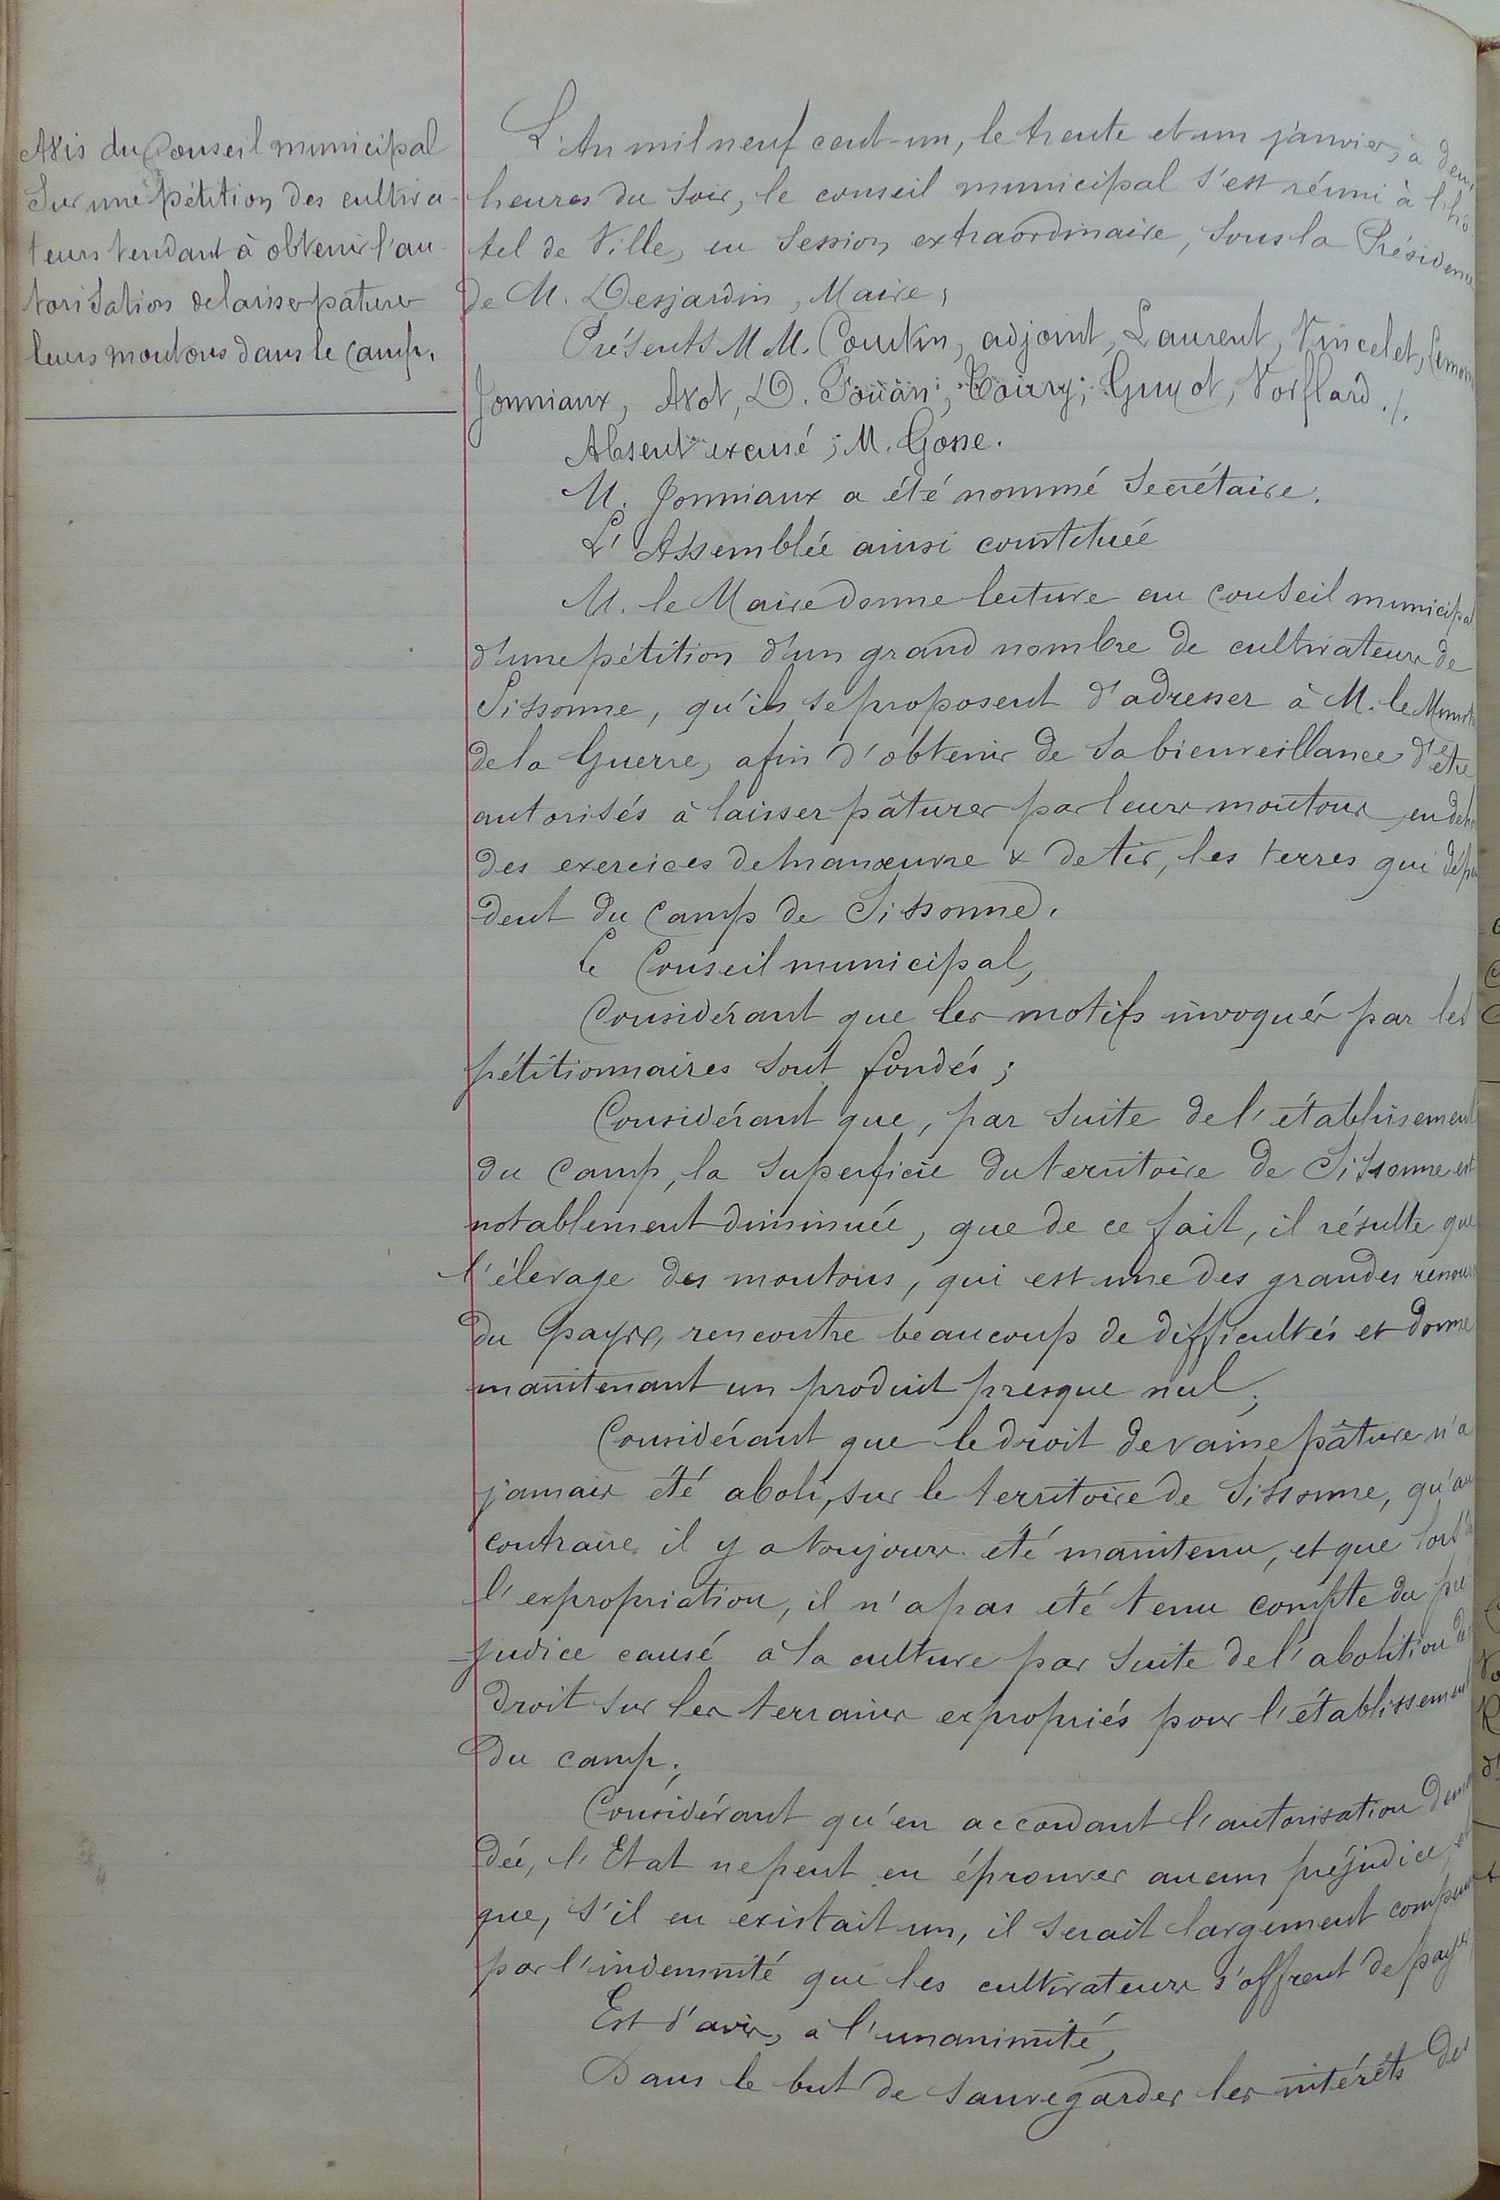 Avis du Conseil municipal
Sur une pétition des cultiva-
teurs tendant à obtenir l'au-
torisation de laisser pâturer
leurs moutons dans le Camp.
L'An mil neuf cent-un, le trente et un janvier, à deux
heures du soir, le conseil municipal s'est réuni à l'hô
tel de Ville, en session extraordinaire, sous la Présidence
de M. Desjardin, Maire,
Présents MM. adjoint, Laurent, Vincelet,
Jonniaux, Avot, D. Fouan, Guyot, Vorflard ./.
Absent excusé ; M. Gosse.
M. Jonniaux a été nommé Secrétaire.
L'Assemblée ainsi constituée
M. le Maire donne lecture au Conseil municipal
d'une pétition d'un grand nombre de cultivateurs de
Sissonne, qu'ils se proposent d'adresser à M. le Ministre
de la Guerre, afin d'obtenir de sa bienveillance d'être
autorisés à laisser pâturer par leurs moutons, en deho
des exercices de manœuvre & de tir, les terres qui dépen
dent du Camp de Sissonne.
Le Conseil municipal,
Considérant que les motifs invoqués par les
pétitionnaires sont fondés ;
Considérant que, par suite de l'établissement
du Camp, la superficie du territoire de Sissonne est
notablement diminuée, que de ce fait, il résulte que
l'élevage des moutons, qui est une des grandes ressour
du pays, rencontre beaucoup de difficultés et donne
maintenant un produit presque nul ;
Considérant que le droit de vaine pâture n'a
jamais été aboli, sur le territoire de Sissonne, qu'au
contraire il y a toujours été maintenu, et que lors de
l'expropriation, il n'a pas été tenu compte du pré
judice causé à la culture par suite de l'abolition de
droit sur les terrains expropriés pour l'établissement
du camp ;
Considérant qu'en accordant l'autorisation deman
dée, l'Etat ne peut en éprouver aucun préjudice, et
que, s'il en existait un, il serait largement compensé
par l'indemnité que les cultivateurs s'offrent de payer
Est d'avis, à l'unanimité,
Dans le but de sauvegarder les intérêts des